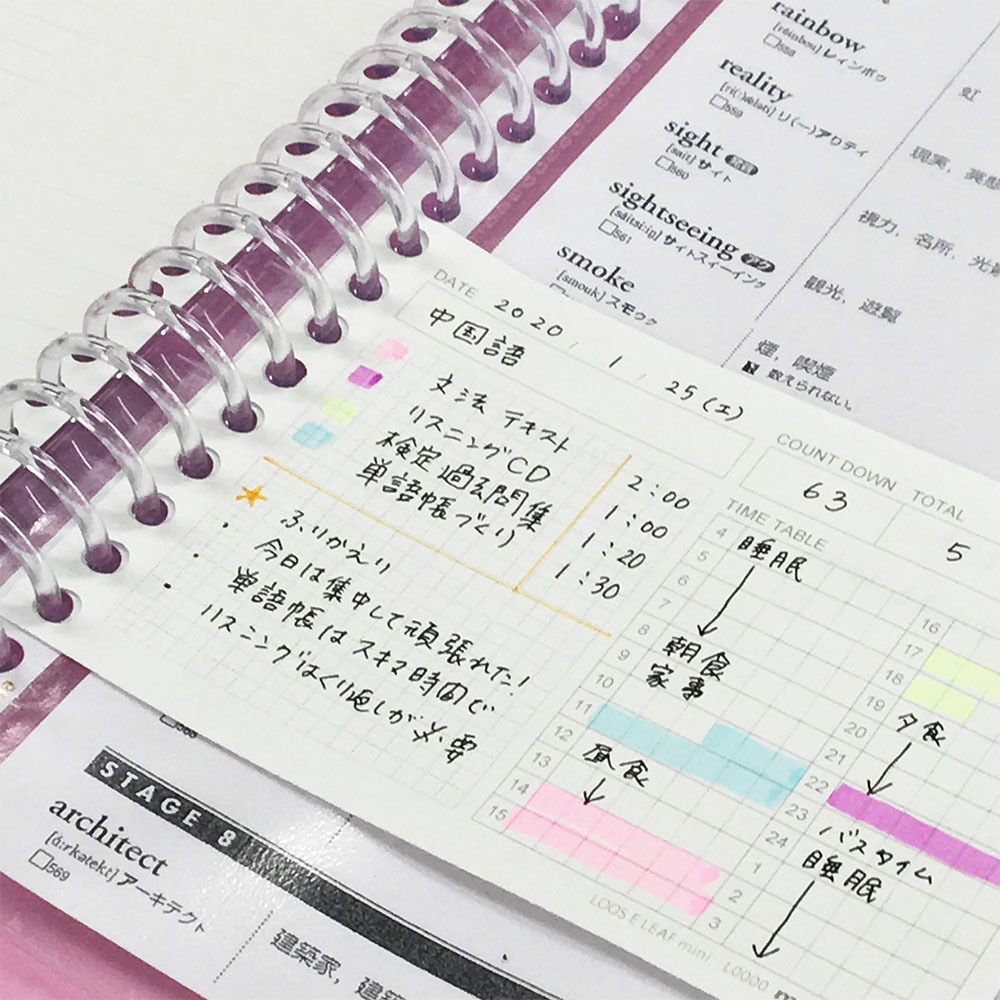 rainbow
[réinbou] レインボウ
□558
虹
reality
[ri(:)ǽləti] リ(ー)アリティ
□559
sight
[sait] サイト
□560
sightseeing
[sáitsi:iŋ] サイトスィーイング
□561
観光, 遊覧
smoke
[smouk] スモウク
煙, 喫煙
数えられない。
DATE 2020 . 1 . 25 (土)
中国語
文法 テキスト 2:00
リスニングCD 1:00
検定過去問集 1:20
単語帳づくり 1:30
★ ふりかえり
・今日は集中して頑張れた!
・単語帳はスキマ時間で
・リスニングはくり返しが必要
COUNT DOWN 63
TOTAL 5
TIME TABLE
4 睡眠
5
6
7
8 朝食
9 家事
10
11
12
13 昼食
14
15
16
17
18
19
20 夕食
21
22
23
24 バスタイム
1 睡眠
2
3
LOOSE LEAF mini L0000
STAGE 8
architect
[á:rkətekt] アーキテクト
□569
建築家, 建築